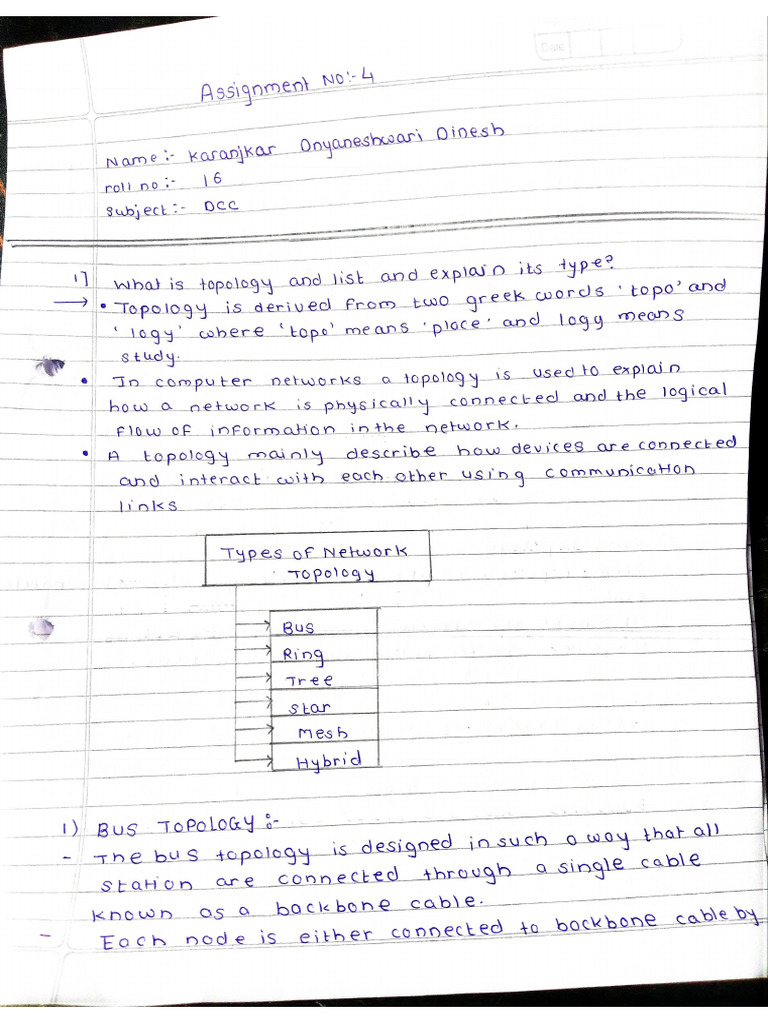 Date
Assignment No:- 4
Name:- Karanjkar Dnyaneshwari Dinesh
roll no:- 16
subject:- DCC
1] What is topology and list and explain its type?
→ • Topology is derived from two greek words 'topo' and
'logy' where 'topo' means 'place' and logy means
study.
• In computer networks a topology is used to explain
how a network is physically connected and the logical
flow of information in the network.
• A topology mainly describe how devices are connected
and interact with each other using communication
links
Types of Network
Topology
Bus
Ring
Tree
Star
Mesh
Hybrid
1) BUS TOPOLOGY:-
- The bus topology is designed in such a way that all
station are connected through a single cable
known as a backbone cable.
- Each node is either connected to backbone cable by